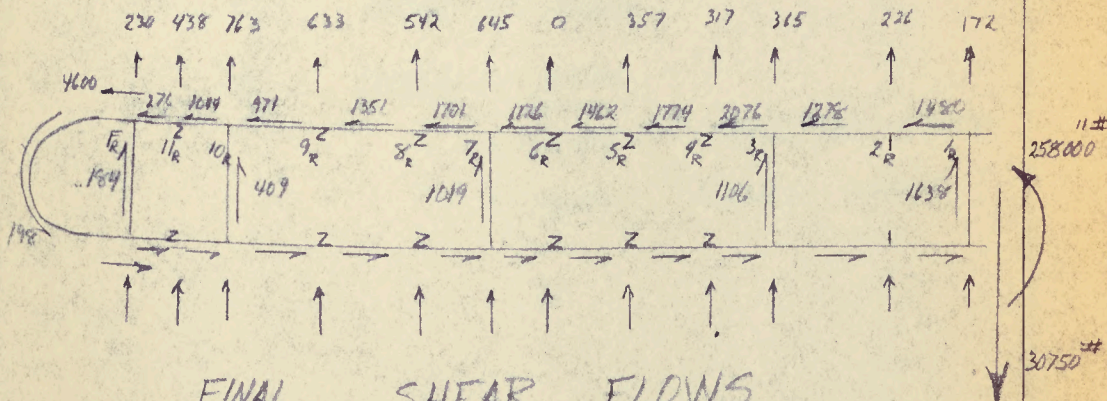 230 438 763 633 542 645 0 357 317 365 226 172
4600
276 1014 971 1351 1701 1726 1462 1774 2076 1278 1480
FR 11R 10R 9R 8R 7R 6R 5R 4R 3R 2R 1R
"#
258000
184 409 1019 1106 1638
198
30750#
FINAL SHEAR FLOWS